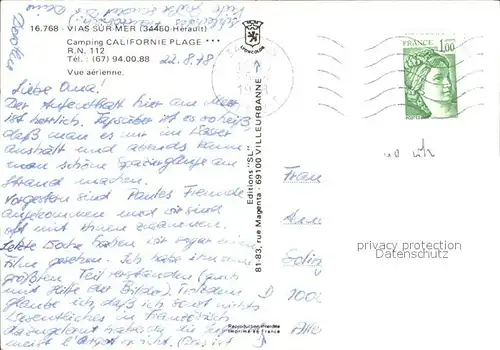 16.768 - VIAS SUR MER (34460 Hérault)
Camping CALIFORNIE PLAGE ***
R.N. 112
Tél. : (67) 94.00.88
Vue aérienne.
22.8.78
Liebe Oma!
Der Aufenthalt hier am Meer
ist herrlich. Tagsüber ist es so heiß,
daß man es nur im Wasser
aushält und abends kann
man schöne Spaziergänge am
Strand machen.
Vorgestern sind Freunde
angekommen und wir sind
oft mit ihnen zusammen.
Letzte Woche haben wir sogar einen
Film gesehen. Ich habe ihn zum
größten Teil verstanden (auch
mit Hilfe der Bilder). Trotzdem
glaube ich, daß ich sonst nichts
Wesentliches in Französisch
dazugelernt habe, da die
meist (Das ist
LYONCOLOR
Editions "SL"
81-83, rue Magenta - 69100 VILLEURBANNE
Reproduction Interdite
Imprimé en France
FRANCE
1,00
Frau
D 100
privacy protection
Datenschutz